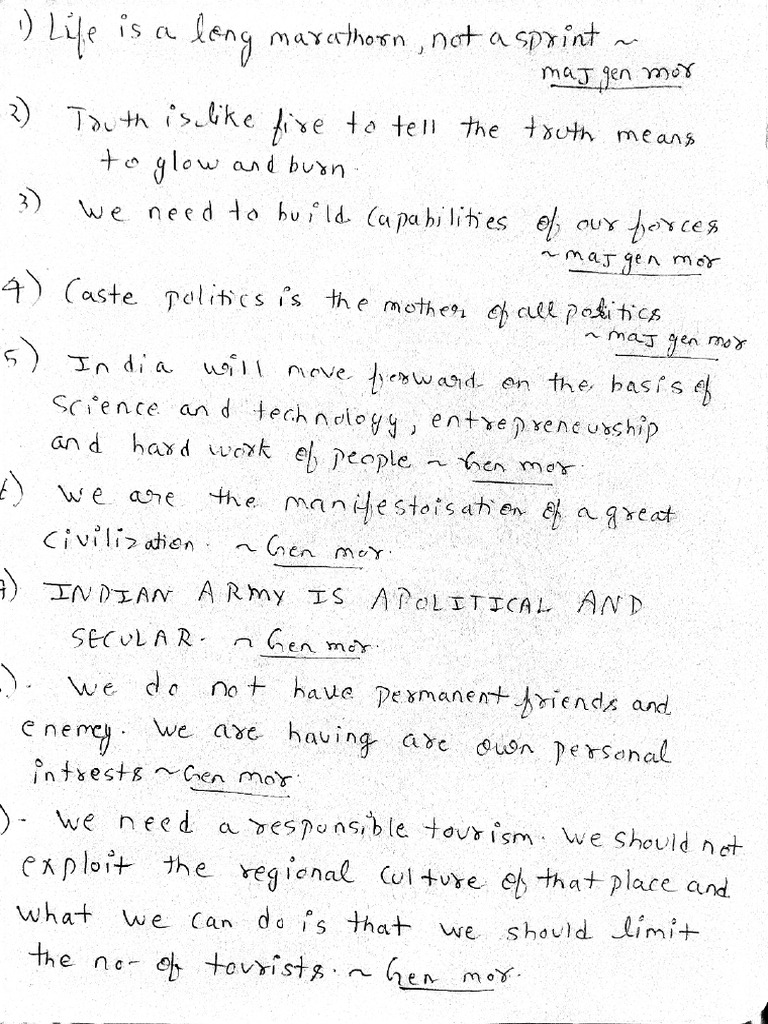 1) Life is a long marathorn, not a sprint ~
maJ gen mor
2) Truth is like fire to tell the truth means
to glow and burn.
3) We need to build capabilities of our forces
~ maJ gen mor
4) Caste politics is the mother of all politics
~ maJ gen mor
5) India will move forward on the basis of
science and technology, entrepreneurship
and hard work of people ~ Gen mor.
) We are the manifestoisation of a great
civilization. ~ Gen mor.
) INDIAN ARMY IS APOLITICAL AND
SECULAR. ~ Gen mor.
). We do not have permanent friends and
enemey. We are having are own personal
intrests ~ Gen mor.
)- We need a responsible tourism. We should not
exploit the regional culture of that place and
what we can do is that we should limit
the no- of tourists. ~ Gen mor.